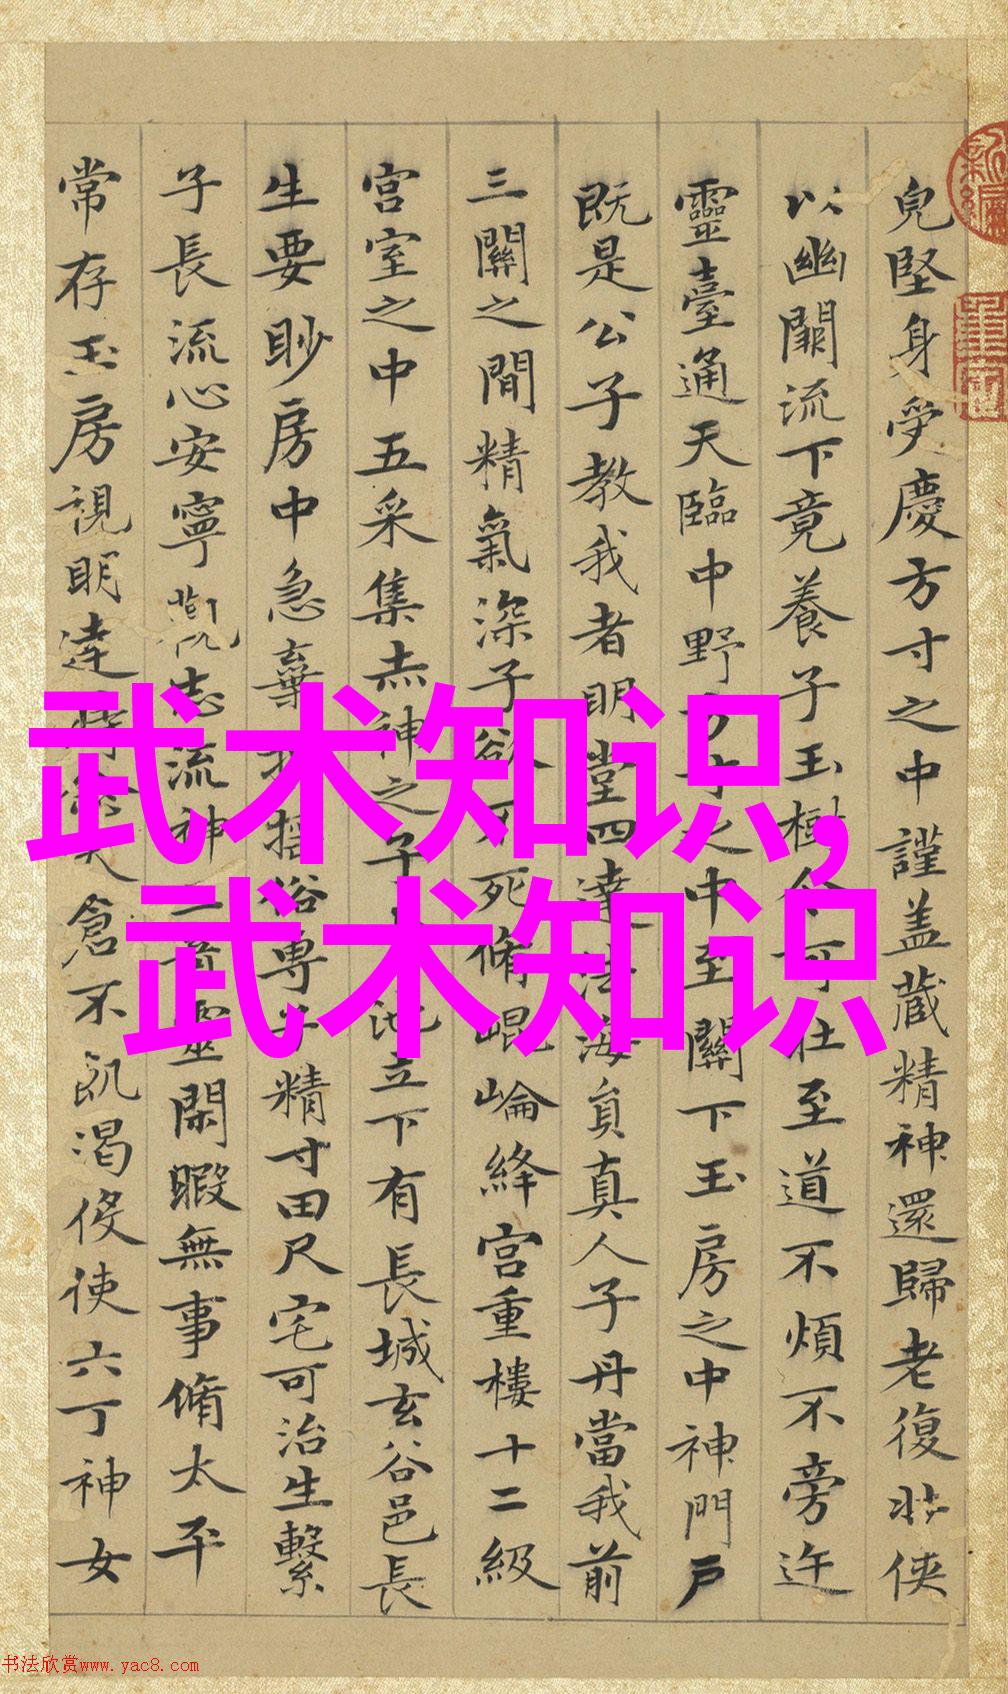 皃堅身受慶方寸之中謹盖蔵精神還歸老復壮侠
以幽關流下竟養子玉樹令可在至道不煩不旁迕
靈臺通天臨中野方寸之中至關下玉房之中神門戶
既是公子教我者明堂四達法海貟真人子丹當我前
三關之間精氣深子欲不死脩崐崘絳宮重樓十二級
宫室之中五采集赤神之子中池立下有長城玄谷邑長
生要眇房中急棄捐俗専子精寸田尺宅可治生繫
子長流心安寧志流神三靈閑暇無事脩太平
常存玉房視明達時念大倉不飢渴伇使六丁神女
武术知识,
武术知识
书法欣赏www.yac8.com